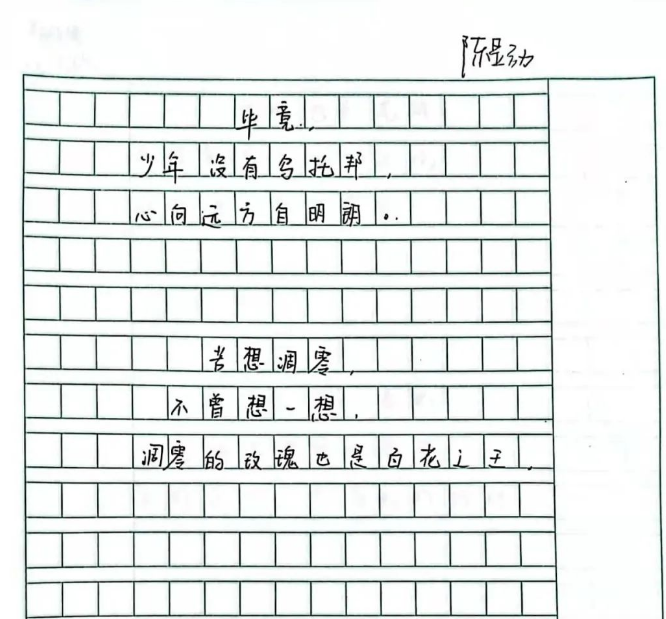 毕竟,
少年没有乌托邦,
心向远方自明朗。
苦想凋零,
不曾想一想,
凋零的玫瑰也是百花之王,